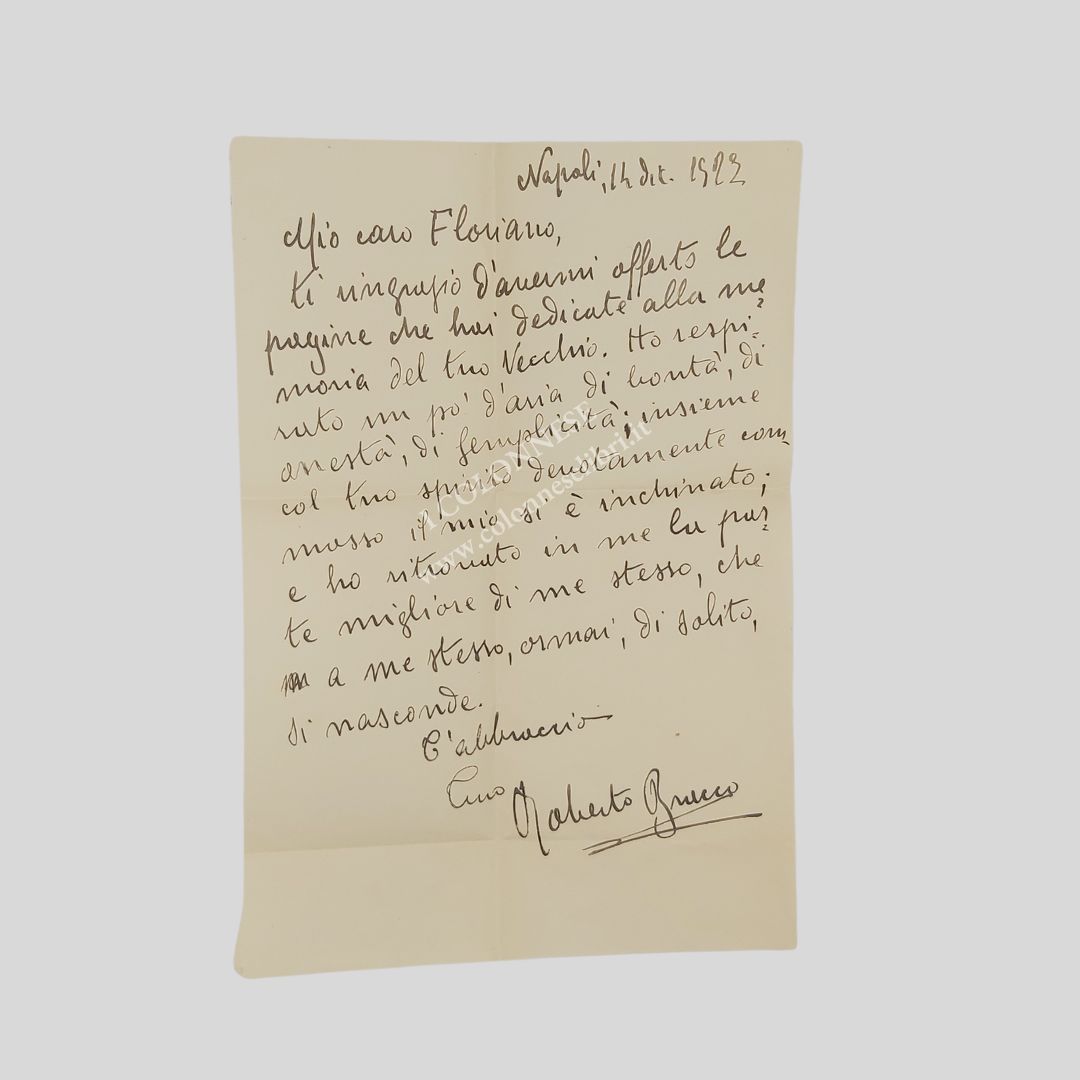 Napoli, 14 dic. 1922
Mio caro Floriano,
ti ringrazio d'avermi offerto le
pagine che hai dedicate alla me=
moria del tuo Vecchio. Ho respi=
rato un po' d'aria di bontà, di
onestà, di semplicità; insieme
col tuo spirito devotamente com=
mosso il mio si è inchinato;
e ho ritrovato in me la par=
te migliore di me stesso, che
a me stesso, ormai, di solito,
si nasconde.
T'abbraccio
Tuo Roberto Bracco
COLONNESE
www.colonneselibri.it